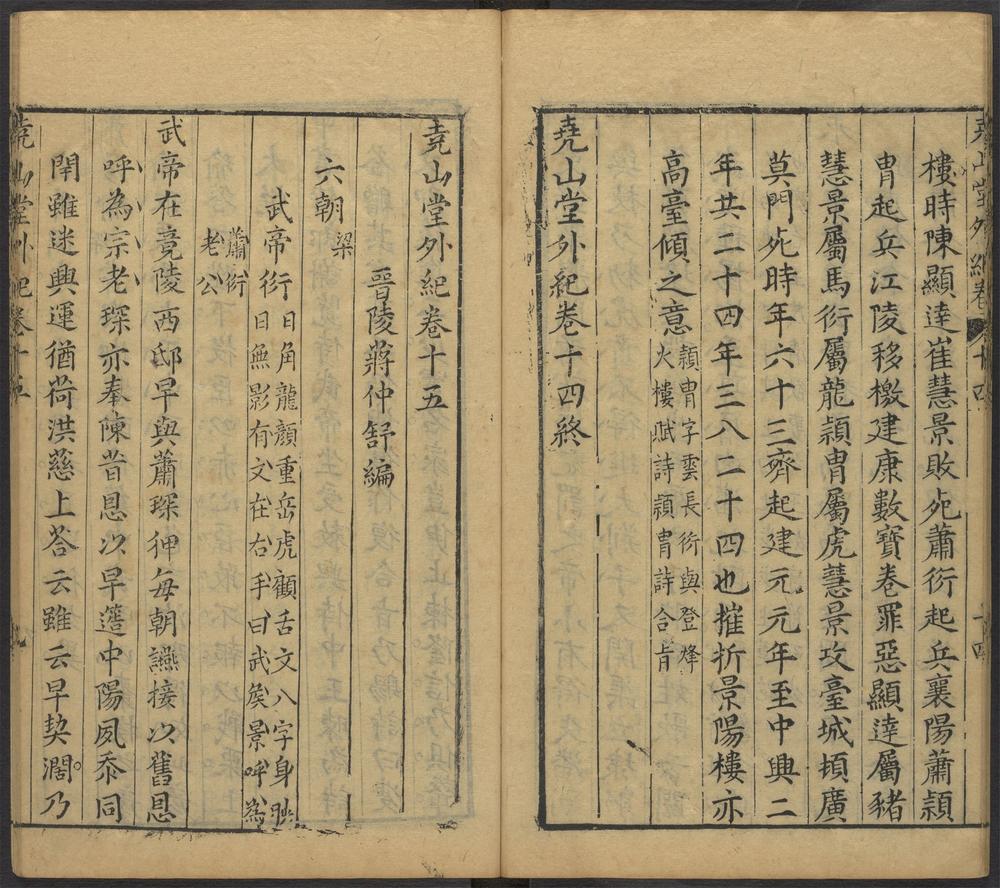 堯山堂外紀卷十四
十四
樓時陳顯達崔慧景敗死蕭衍起兵襄陽蕭穎
胄起兵江陵移檄建康數寶卷罪惡顯達屬豬
慧景屬馬衍屬龍穎胄屬虎慧景攻臺城頓廣
莫門死時年六十三齊起建元元年至中興二
年共二十四年三八二十四也摧折景陽樓亦
高臺傾之意
穎胄字雲長衍與登烽
火樓賦詩穎胄詩合旨
堯山堂外紀卷十四終
堯山堂外紀卷十五
晉陵蔣仲舒編
六朝
梁
武帝衍
日角龍顏重岳虎顧舌文八字身映
日無影有文在右手曰武矦景呼為
蕭衍
老公
武帝在竟陵西邸早與蕭琛狎每朝讌接以舊恩
呼為宗老琛亦奉陳昔恩以早簉中陽夙忝同
閈雖迷興運猶荷洪慈上荅云雖云早契濶乃
堯山堂外紀卷十五